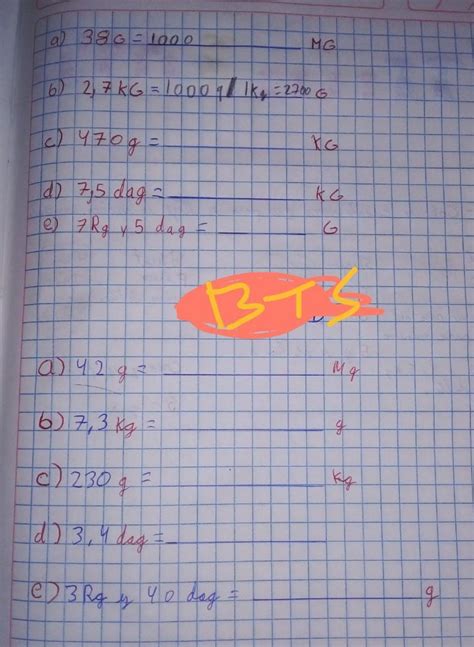 a) 38G = 1000 MG
b) 2,7 KG = 1000 g/ 1kg = 2700 G
c) 470g = KG
d) 7,5 dag = KG
e) 7Rg y 5 dag = G
BTS
a) 42 g = Mg
b) 7,3 Kg = g
c) 230 g = Kg
d) 3,4 dag =
e) 3Rg y 40 dag = g